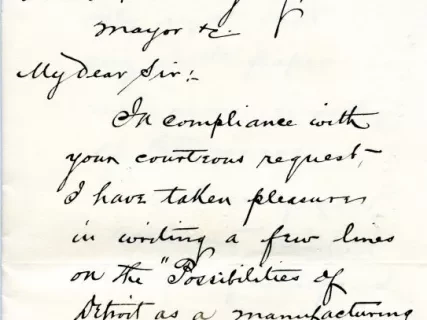 Mayor &c.
My Dear Sir:-
In compliance with
your courteous request-
I have taken pleasure
in writing a few lines
on the "Possibilities of
Detroit as a manufacturing